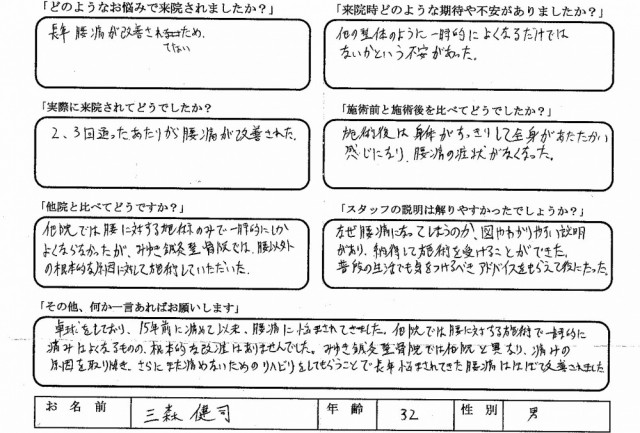 「どのようなお悩みで来院されましたか？」
長年腰痛が改善されてないため。
「来院時どのような期待や不安がありましたか？」
他の整体のように一時的によくなるだけでは
ないかという不安があった。
「実際に来院されてどうでしたか？
2、3回通ったあたりから腰痛が改善された。
「施術前と施術後を比べてどうでしたか？」
施術後は身体がすっきりして全身があたたかい
感じになり、腰痛の症状がなくなった。
「他院と比べてどうですか？」
他院では腰に対する施術のみで一時的にしか
よくならなかったが、みゆき鍼灸整骨院では、腰以外
の根本的な原因に対して施術していただいた。
「スタッフの説明は解りやすかったでしょうか？」
なぜ腰痛になってしまうのか、図やわかりやすい説明
があり、納得して施術を受けることができた。
普段の生活でも身をつけるべきアドバイスをもらえて役にたった。
「その他、何か一言あればお願いします」
卓球をしており、15年前に痛めて以来、腰痛に悩まされてきました。他院では腰に対する施術で一時的に
痛みはよくなるものの、根本的な改善はありませんでした。みゆき鍼灸整骨院では他院と異なり、痛みの
原因を取り除き、さらにまた痛めないためのリハビリをしてもらうことで長年悩まされてきた腰痛はほぼ改善されました
お名前 三森 健司 年齢 32 性別 男